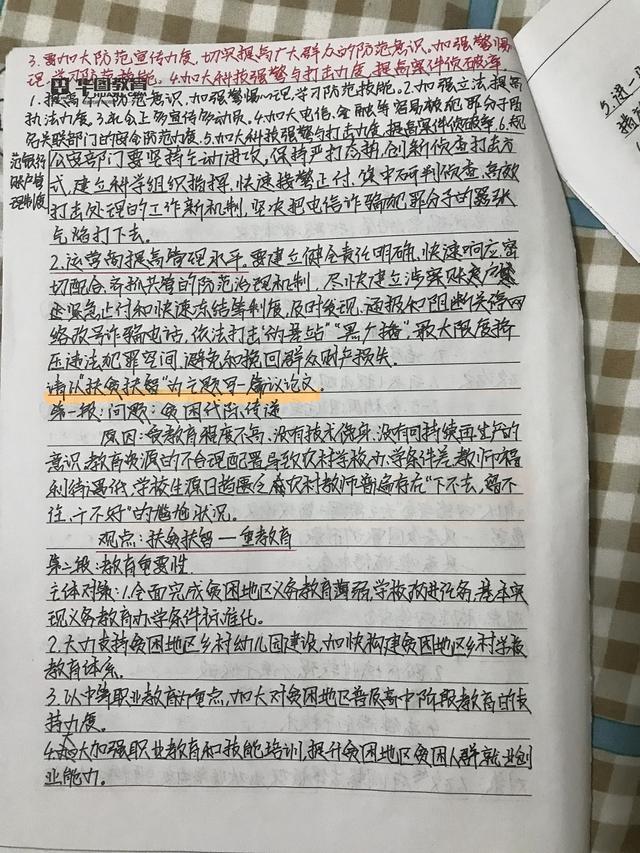 3.要加大防范宣传力度,切实提高广大群众的防范意识。加强警惕
理,学习防范技能。4.加大科技强警与打击力度,提高案件侦破率
华图教育
HUATU.COM
1.提高 防范意识,加强警惕心理,学习防范技能。2.加强立法,提高
执法力度。3.社会上多宣传多动员。4.加大电信、金融等容易被犯罪分子
关联部门的安全防范力度。5.加大科技强警与打击力度,提高案件侦破率。6.规
范银行
账户管
理制度
公安部门要坚持主动进攻,保持严打态势,创新侦查打击方
式,建立科学组织指挥、快速接警止付、集中研判侦查、高效
打击处理的工作新机制,坚决把电信诈骗犯罪分子的嚣张
气焰打下去。
2.运营商提高管理水平。要建立健全责任明确、快速响应、密
切配合、齐抓共管的防范治理机制,尽快建立涉案账户
紧急止付和快速冻结等制度,及时发现、通报和阻断关停网
络改号诈骗电话,依法打击"伪基站""黑广播",最大限度挤
压违法犯罪空间,避免和挽回群众财产损失。
请以"扶贫扶智"为主题写一篇议论文。
第一段:问题:贫困代际传递
原因:受教育程度不高、没有技术傍身、没有可持续再生产的
意识,教育资源的不合理配置导致农村学校办学条件差,教师福
利待遇低,学校生源日趋匮乏,农村教师普遍存在"下不去,留不
住,干不好"的尴尬状况。
观点:扶贫扶智——重教育
第二段:教育重要性
主体对策:1.全面完成贫困地区义务教育薄弱学校改进任务,基本实
现义务教育办学条件标准化。
2.大力支持贫困地区乡村幼儿园建设,加快构建贫困地区乡村学校
教育体系。
3.以中等职业教育为重点,加大对贫困地区普及高中阶段教育的支
持力度。
4. 大加强职业教育和技能培训,提升贫困地区贫困人群就业创
业能力。
5.进一